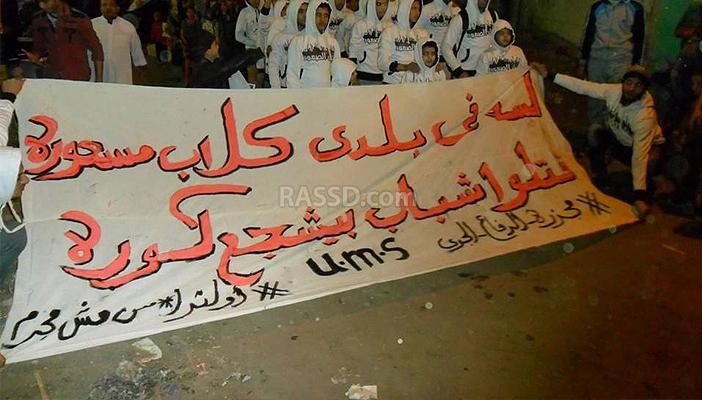 لسه فى بلدى كلاب مسعوره
قتلوا شباب بيشجع كوره
#مجزرة_الدفاع_الجوى
u.m.s
#أولتراس_مش_مجرم
RASSD.com